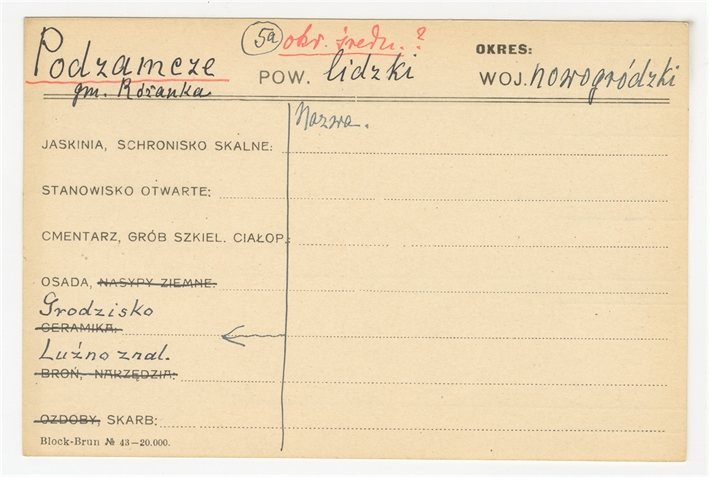 Podzamcze 5a okr. średn. ? OKRES:
gm. Różanka POW. lidzki WOJ. nowogródzki
Nazwa.
JASKINIA, SCHRONISKO SKALNE:
STANOWISKO OTWARTE:
CMENTARZ, GRÓB SZKIEL. CIAŁOP.:
OSADA, NASYPY ZIEMNE:
Grodzisko
CERAMIKA:
Luźno znal.
BROŃ, NARZĘDZIA:
OZDOBY, SKARB:
Block-Brun № 43—20.000.